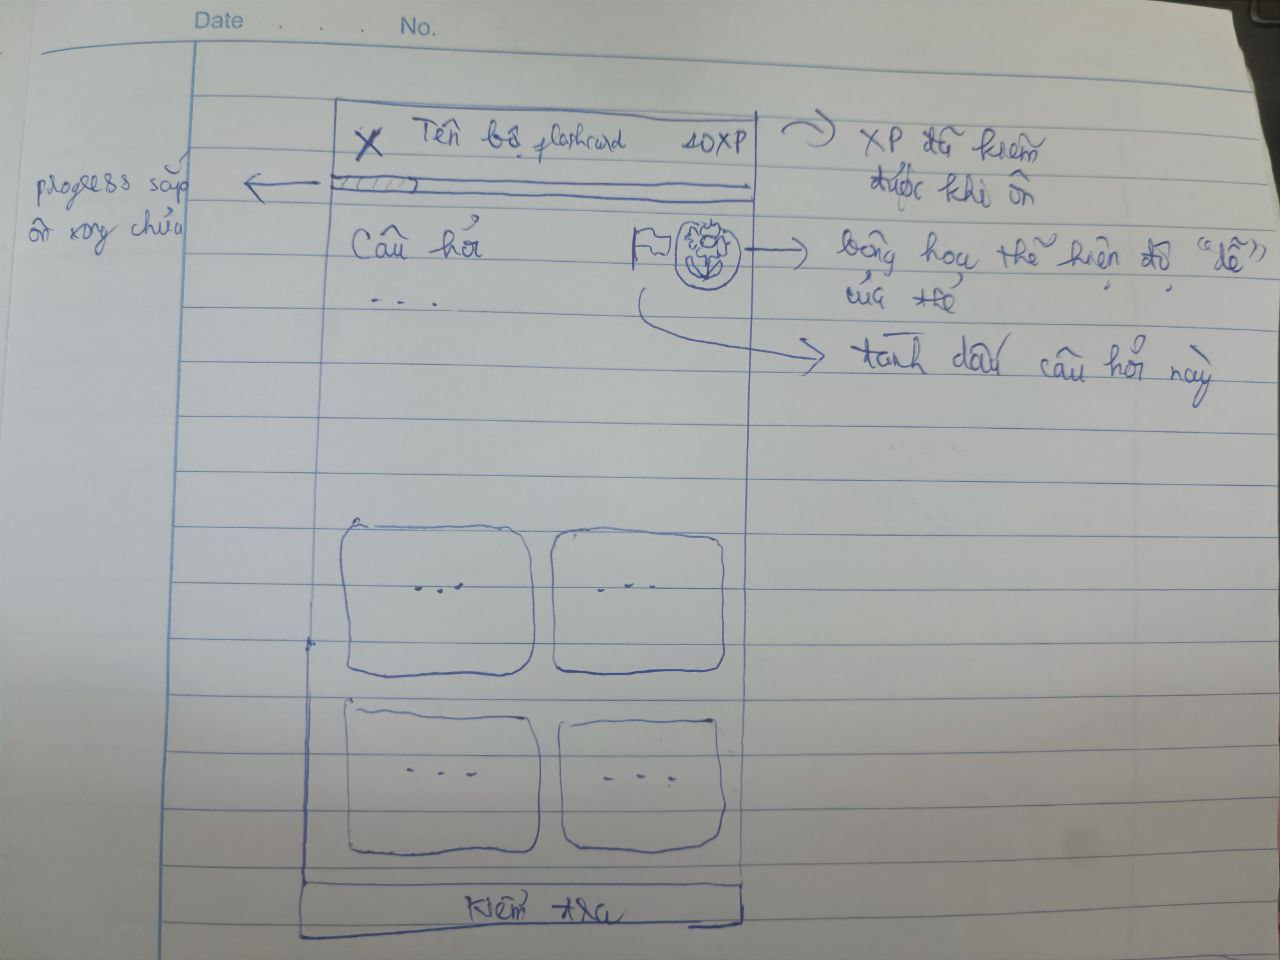 Date . . . No.
X Tên bộ flashcard 10XP
XP đã kiếm
được khi ôn
progress sắp
ôn xong chưa
Câu hỏi
. . .
bông hoa thể hiện độ "dễ"
của thẻ
đánh dấu câu hỏi này
. . .
. . .
. . .
. . .
Kiểm tra